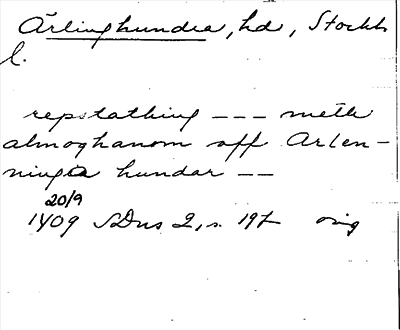 Ärlinghundra, hd, Stockh
l.
repstathing --- meth
almoghanom aff Arlen-
ninga hundar --
20/9
1409 SDns 2, s. 197 orig